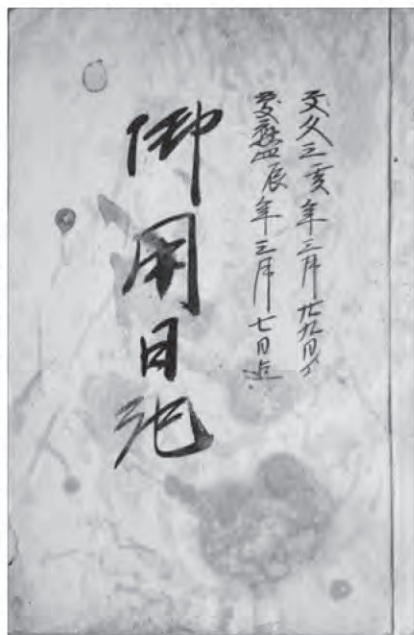 文久三亥年三月廿九日ゟ
慶應四辰年三月七日迄
御用日記